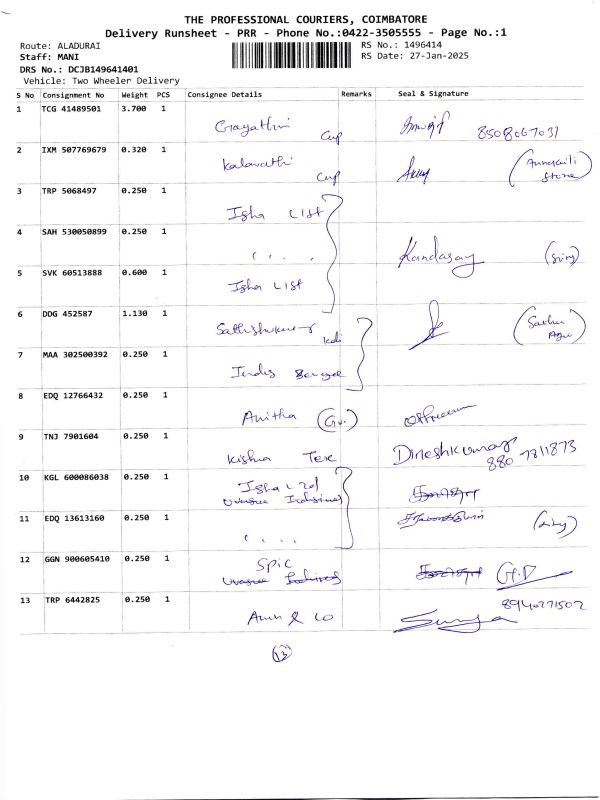 THE PROFESSIONAL COURIERS, COIMBATORE
Delivery Runsheet - PRR - Phone No.:0422-3505555 - Page No.:1
Route: ALADURAI
RS No.: 1496414
Staff: MANI
RS Date: 27-Jan-2025
DRS No.: DCJB149641401
Vehicle: Two Wheeler Delivery
S No Consignment No Weight PCS Consignee Details Remarks Seal & Signature
1 TCG 41489501 3.700 1
Gayathri Cup 8508067031
2 IXM 507769679 0.320 1
Kalavathi Cup
3 TRP 5068497 0.250 1
Isha LIST
4 SAH 530050899 0.250 1
Kandasay
5 SVK 60513888 0.600 1
Isha LIST
6 DDG 452587 1.130 1
7 MAA 302500392 0.250 1
8 EDQ 12766432 0.250 1
Anitha
9 TNJ 7901604 0.250 1
Dineshkumar
Kishna 880 7811873
10 KGL 600086038 0.250 1
Isha
11 EDQ 13613160 0.250 1
12 GGN 900605410 0.250 1
SPIC
13 TRP 6442825 0.250 1
8940271502
Arun & Co Surya
13